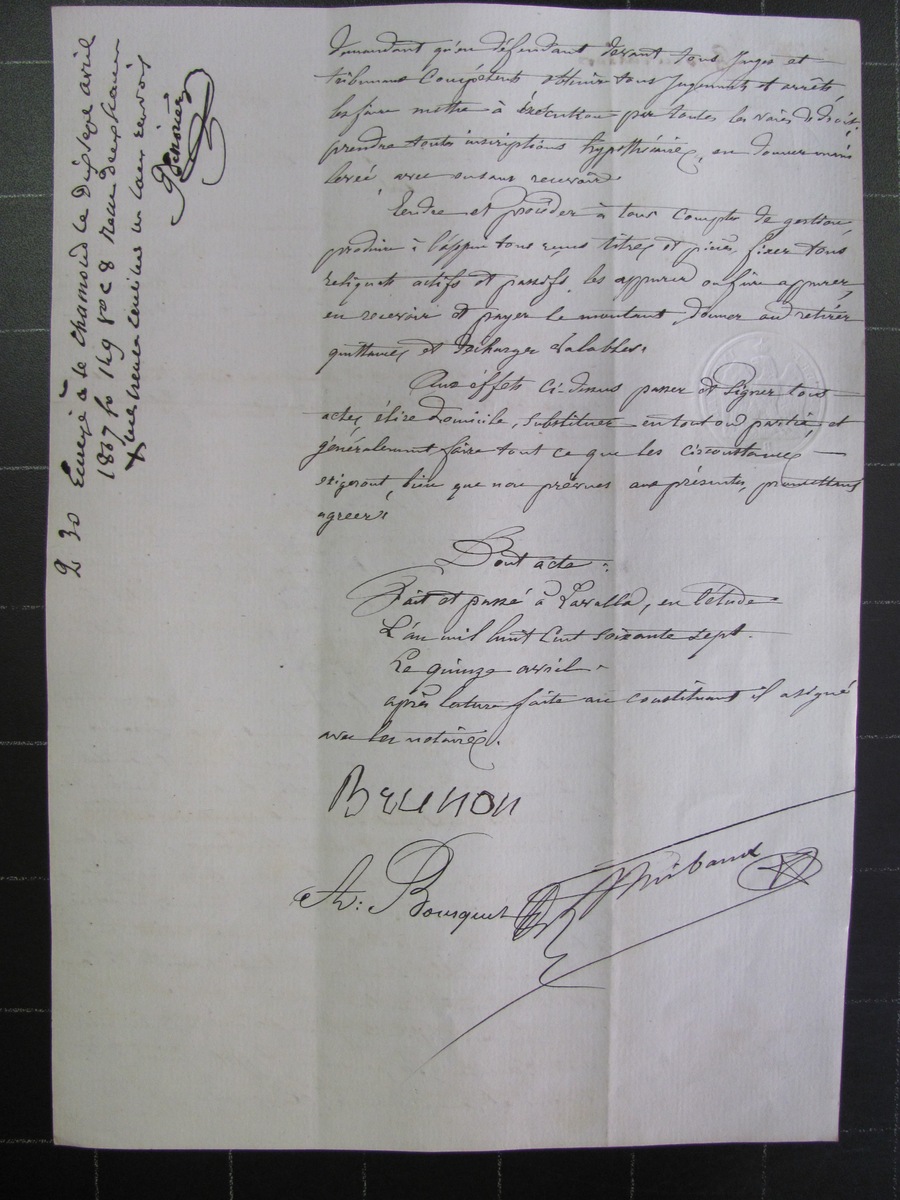 demandant qu'en défendant devant tous Juges et
tribunaux Compétents obtenir tous Jugements et arrêts
les faire mettre à Exécution par toutes les voies de droit,
prendre toutes inscriptions hypothécaires, en donner main
levée avec ou sans recevoir.
Rendre et procéder à tous comptes de gestion,
produire à l'appui tous titres et pièces, fixer tous
reliquats actifs et passifs, les appurer ou faire appurer,
en recevoir et payer le montant, donner ou retirer
quittances et décharges valables.
Aux effets ci-dessus passer et signer tous
actes, élire domicile, substituer en tout ou partie, et
généralement faire tout ce que les circonstances
exigeront, bien que non prévues aux présentes, promettant
agréer.
Dont acte:
Fait et passé à Lavalla, en l'étude
L'an mil huit cent soixante sept.
Le quinze avril.
après lecture faite au constituant il a signé
avec les notaires.
Brunon
Bousquet
Thibaud
2 30 à St Chamond le Dix sept avril
1867 fo 149 Vo C 8 Reçu deux francs